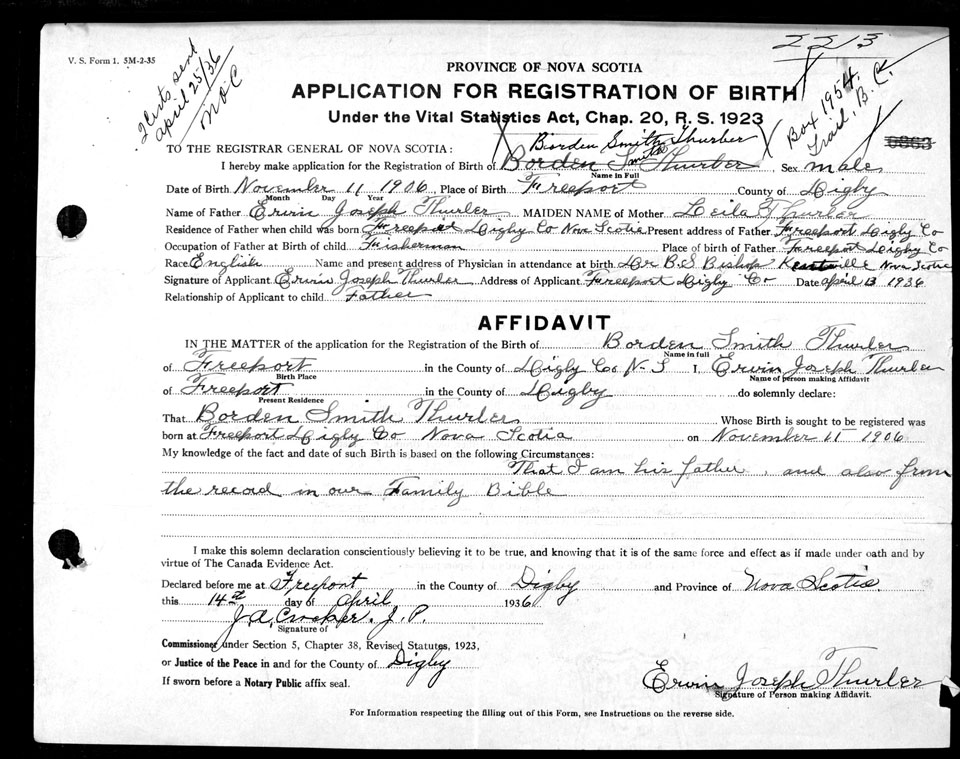 2213
V. S. Form 1. 5M-2-35
2 Certs sent
april 25/36
MOC
Box 1954.
Trail, B. C.
PROVINCE OF NOVA SCOTIA
APPLICATION FOR REGISTRATION OF BIRTH
Under the Vital Statistics Act, Chap. 20, R. S. 1923
Borden Smith Thurber
TO THE REGISTRAR GENERAL OF NOVA SCOTIA:
I hereby make application for the Registration of Birth of Borden Smith Thurber Sex male
Name in Full
Date of Birth November 11 1906 Place of Birth Freeport County of Digby
Month Day Year
Name of Father Erwin Joseph Thurler MAIDEN NAME of Mother Leila Thurler
Residence of Father when child was born Freeport Digby Co Nova Scotia Present address of Father Freeport Digby Co
Occupation of Father at Birth of child Fisherman Place of birth of Father Freeport Digby Co
Race English Name and present address of Physician in attendance at birth Dr B.S Bishop Kentville Nova Scotia
Signature of Applicant Erwin Joseph Thurler Address of Applicant Freeport Digby Co Date april 13 1936
Relationship of Applicant to child Father
AFFIDAVIT
IN THE MATTER of the application for the Registration of the Birth of Borden Smith Thurler
Name in full
of Freeport in the County of Digby Co N-S I, Erwin Joseph Thurler
Birth Place Name of person making Affidavit
of Freeport in the County of Digby do solemnly declare:
Present Residence
That Borden Smith Thurler Whose Birth is sought to be registered was
born at Freeport Digby Co Nova Scotia on November 11 1906
My knowledge of the fact and date of such Birth is based on the following Circumstances:
That I am his father, and also from
the record in our Family Bible
I make this solemn declaration conscientiously believing it to be true, and knowing that it is of the same force and effect as if made under oath and by
virtue of The Canada Evidence Act.
Declared before me at Freeport in the County of Digby and Province of Nova Scotia
this 14th day of April 1936
J. A. Crocker. J. P.
Signature of
Commissioner under Section 5, Chapter 38, Revised Statutes, 1923,
or Justice of the Peace in and for the County of Digby
If sworn before a Notary Public affix seal.
Erwin Joseph Thurler
Signature of Person making Affidavit.
For Information respecting the filling out of this Form, see Instructions on the reverse side.